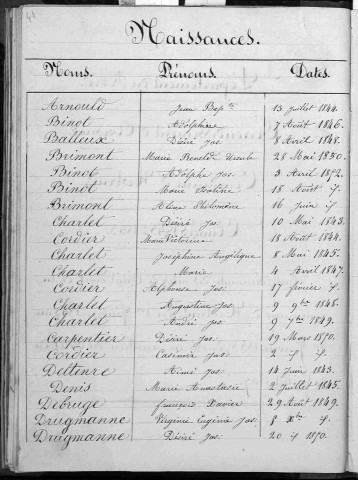 Naissances.
Noms. Prénoms. Dates.
Arnould Jean Bapte 13 Juillet 1844.
Binot Adolphine 7 Août 1846.
Balleux Désiré Jos: 8 Avril 1848.
Brimont Marie Benoîde 28 Mai 1850.
Binot Adolphe Jos: 3 Avril 1852.
Binot Marie 18 Août if.
Brimont Philomène 16 Juin if.
Charlet Désiré Jos: 10 Mai 1843.
Cordier Marie Victorine 18 Août 1844.
Charlet Joséphine Angélique 8 Mai 1845.
Charlet Marie 4 Avril 1847.
Cordier Alphonse Jos: 17 février if.
Charlet Augustine Jos: 9 9bre 1848.
Charlet André Jos: 9 7bre 1849.
Carpentier Désiré Jos: 19 Mars 1850.
Cordier Casimir Jos: 2 if if.
Deltenre Aimé Jos: 14 Juin 1843.
Denis Marie Anastasie 2 Juillet 1845.
Debruge françois Xavier 29 Août 1849.
Drugmanne Virginie Eugénie Jos: 8 Xbre if.
Drugmanne Désiré Jos: 20 if 1850.